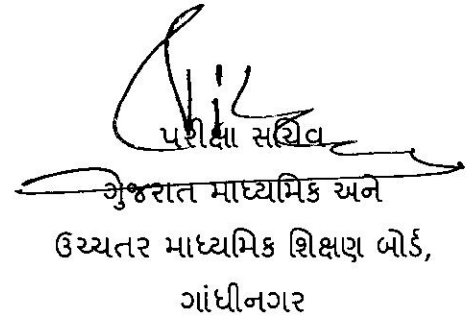 પરીક્ષા સચિવ
ગુજરાત માધ્યમિક અને
ઉચ્ચતર માધ્યમિક શિક્ષણ બોર્ડ,
ગાંધીનગર